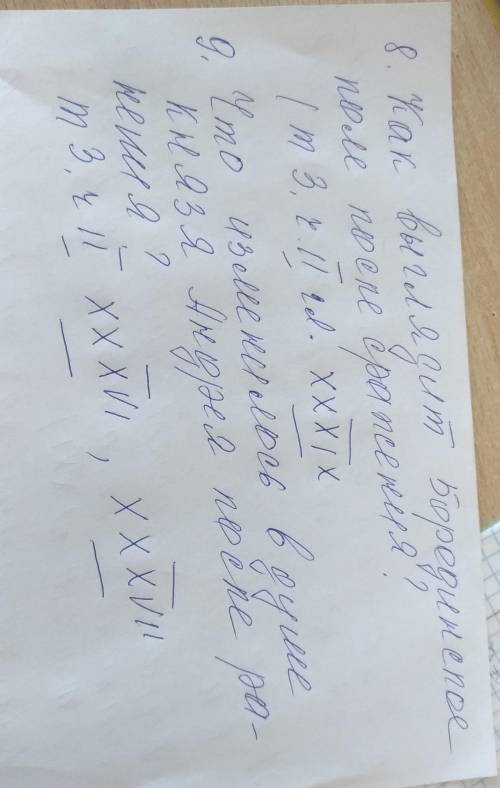 8. Как выглядит Бородинское
поле после сражения?
(т 3, ч. II гл. XXXIX
9. Что изменилось в душе
князя Андрея после ра-
нения?
т 3, ч II XXXVI, XXXVII